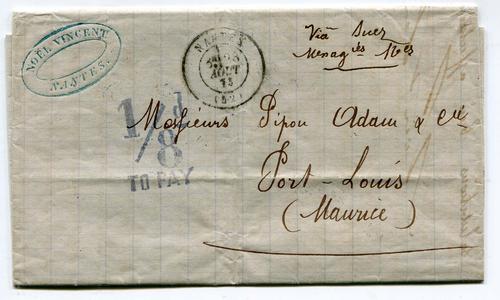 NOËL VINCENT
NANTES.
NANTES
AOUT
73
(42)
Viâ Suez
Messag^ies M^es
1/8d
TO PAY
Messieurs Pipon Adam & Cie
Port-Louis
(Maurice)